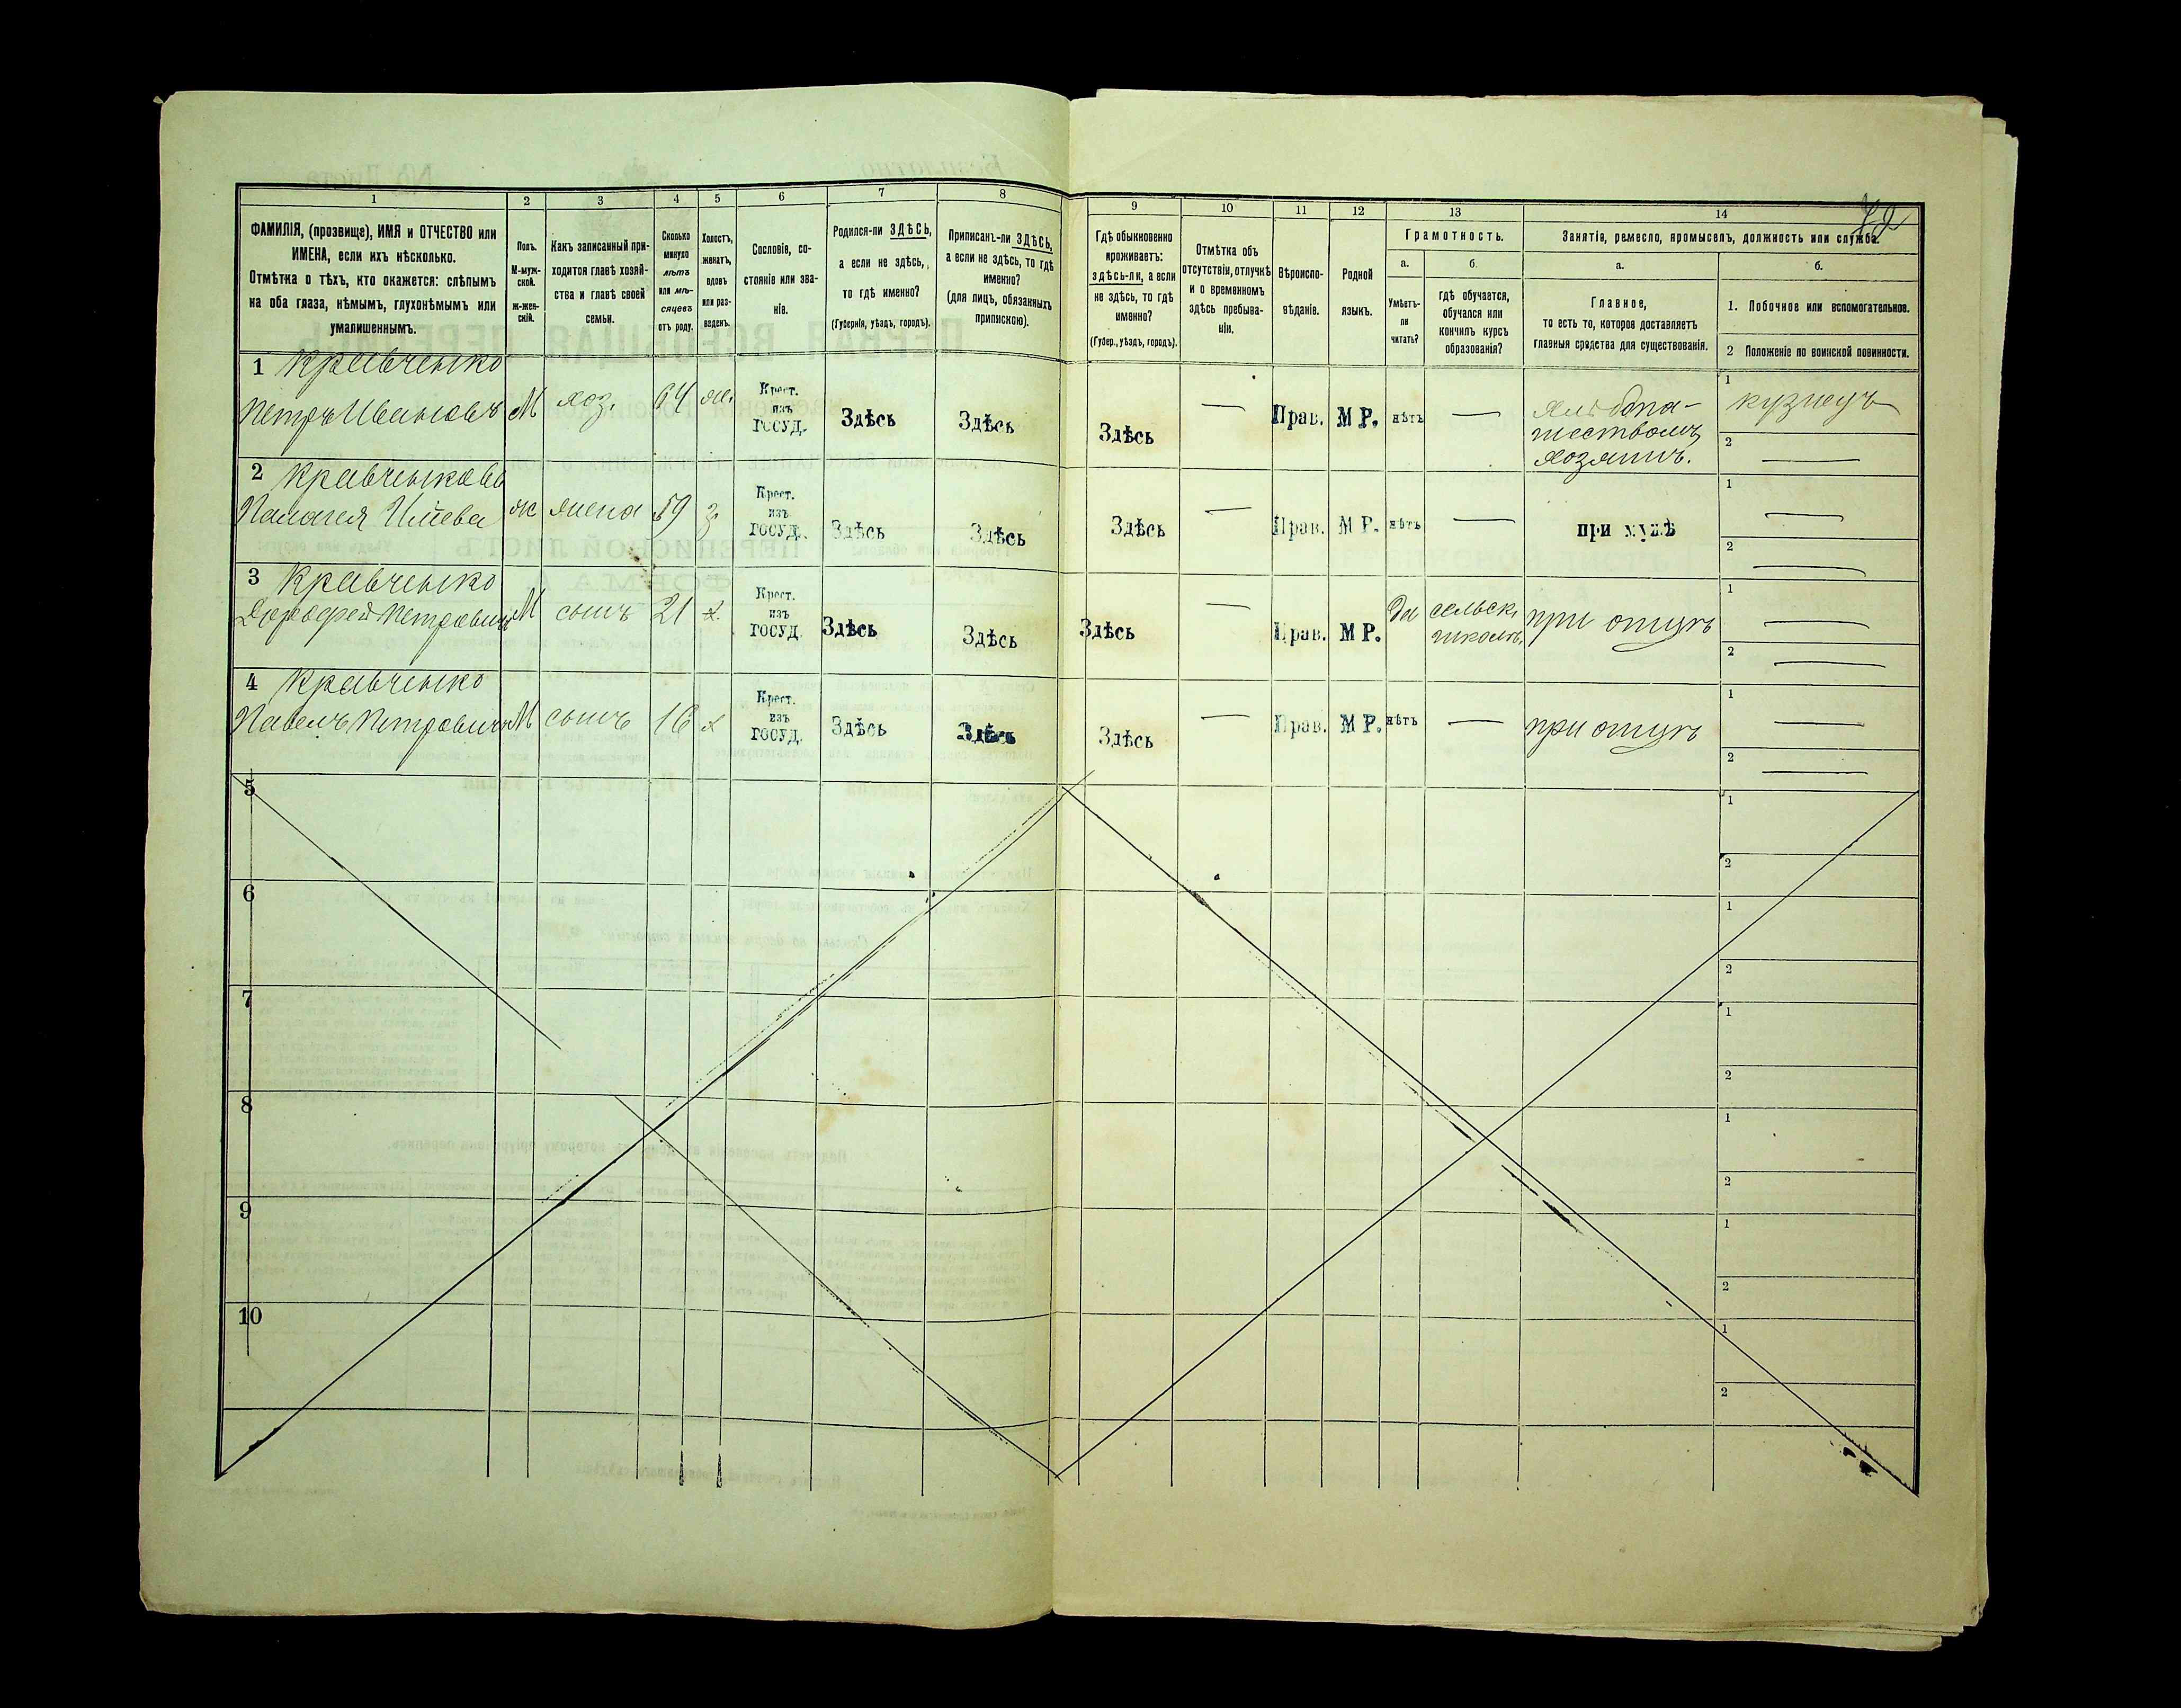 1
2
3
4
5
6
7
8
9
10
11
12
13
14
ФАМИЛІЯ, (прозвище), ИМЯ и ОТЧЕСТВО или
ИМЕНА, если ихъ нѣсколько.
Отмѣтка о тѣхъ, кто окажется: слѣпымъ
на оба глаза, нѣмымъ, глухонѣмымъ или
умалишеннымъ.
Полъ.
М-муж-
ской.
Ж-жен-
скій.
Какъ записанный при-
ходится главѣ хозяй-
ства и главѣ своей
семьи.
Сколько
минуло
лѣтъ
или мѣ-
сяцевъ
отъ роду.
Холостъ,
женатъ,
вдовъ
или раз-
веденъ.
Сословіе, со-
стояніе или зва-
ніе.
Родился-ли ЗДѢСЬ,
а если не здѣсь,
то гдѣ именно?
(Губернія, уѣздъ, городъ).
Приписанъ-ли ЗДѢСЬ,
а если не здѣсь, то гдѣ
именно?
(для лицъ, обязанныхъ
припискою).
Гдѣ обыкновенно
проживаетъ:
здѣсь-ли, а если
не здѣсь, то гдѣ
именно?
(Губер., уѣздъ, городъ).
Отмѣтка объ
отсутствіи, отлучкѣ
и о временномъ
здѣсь пребыва-
ніи.
Вѣроиспо-
вѣданіе.
Родной
языкъ.
Грамотность.
а.
Умѣетъ-
ли
читать?
б.
гдѣ обучается,
обучался или
кончилъ курсъ
образованія?
Занятіе, ремесло, промыселъ, должность или служба.
а.
Главное,
то есть то, которое доставляетъ
главныя средства для существованія.
б.
1. Побочное или вспомогательное.
2 Положеніе по воинской повинности.
1 Кравченко
Петръ Ивановъ М хоз. 64 ж. Крест. изъ ГОСУД. Здѣсь Здѣсь Здѣсь — Прав. М Р. нѣтъ — хлѣбопа-
шествомъ
хозяинъ.
1 кузнецъ
2 —
2 Кравченкова
Палагея ж жена 59 з. Крест. изъ ГОСУД. Здѣсь Здѣсь Здѣсь — Прав. М Р. нѣтъ — при мужѣ
1 —
2 —
3 Кравченко
Дорофей Петровичъ М сынъ 21 х. Крест. изъ ГОСУД. Здѣсь Здѣсь Здѣсь — Прав. М Р. да сельск.
школѣ, при отцѣ
1 —
2 —
4 Кравченко
Павелъ Петровичъ М сынъ 16 х Крест. изъ ГОСУД. Здѣсь Здѣсь Здѣсь — Прав. М Р. нѣтъ — при отцѣ
1 —
2 —
5
1
2
6
1
2
7
1
2
8
1
2
9
1
2
10
1
2